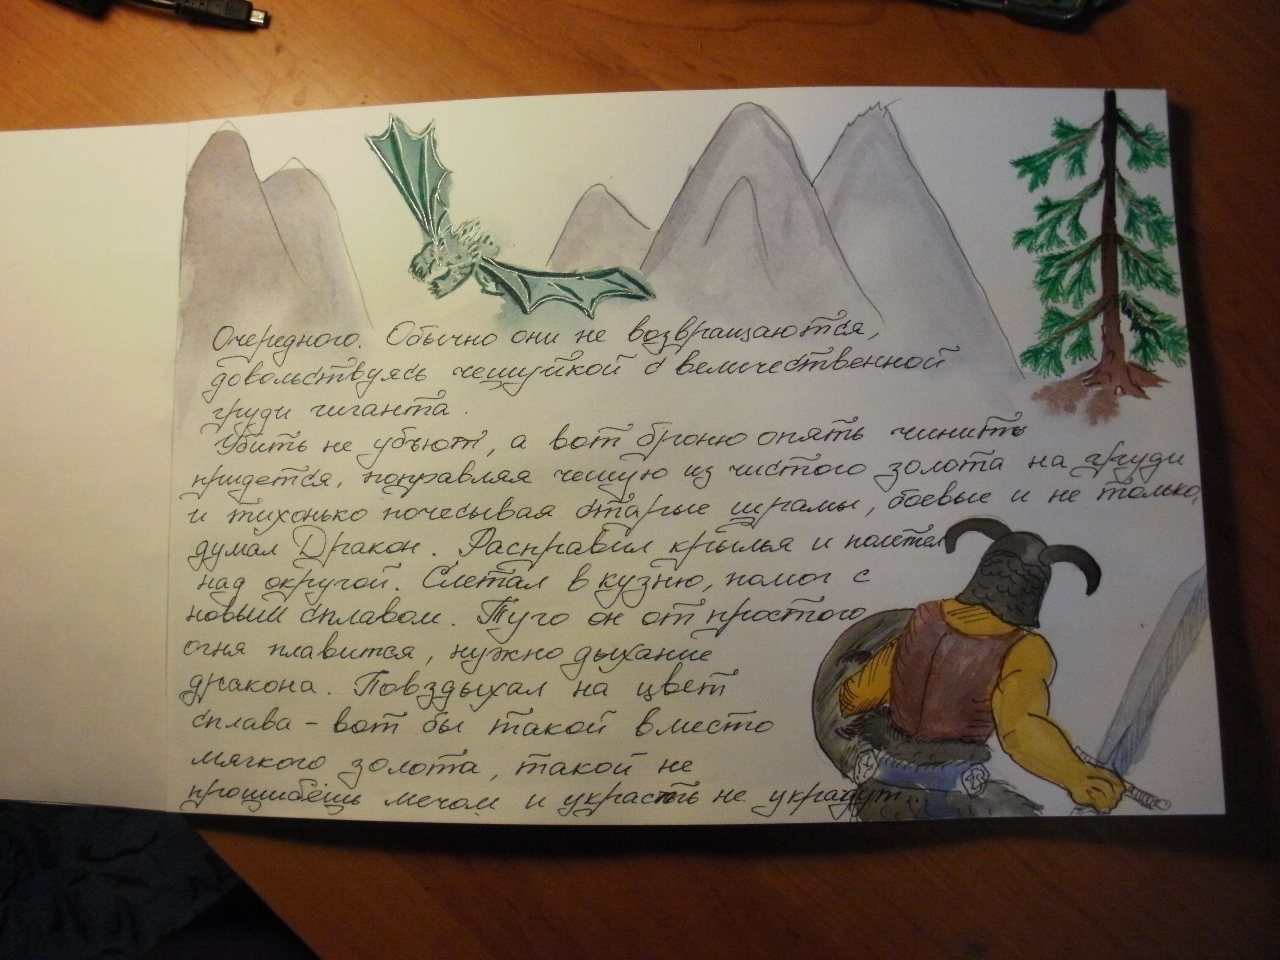 Очередного. Обычно они не возвращаются,
довольствуясь чешуйкой с величественной
груди гиганта.
Убить не убъют, а вот броню опять чинить
придется, поправляя чешую из чистого золота на груди
и тихонько почесывая старые шрамы, боевые и не только,
думал Дракон. Расправил крылья и полетел
над округой. Слетал в кузню, помог с
новым сплавом. Туго он от простого
огня плавится, нужно дыхание
дракона. Повздыхал на цвет
сплава - вот бы такой вместо
мягкого золота, такой не
прошибёшь мечом и украсть не украдут...